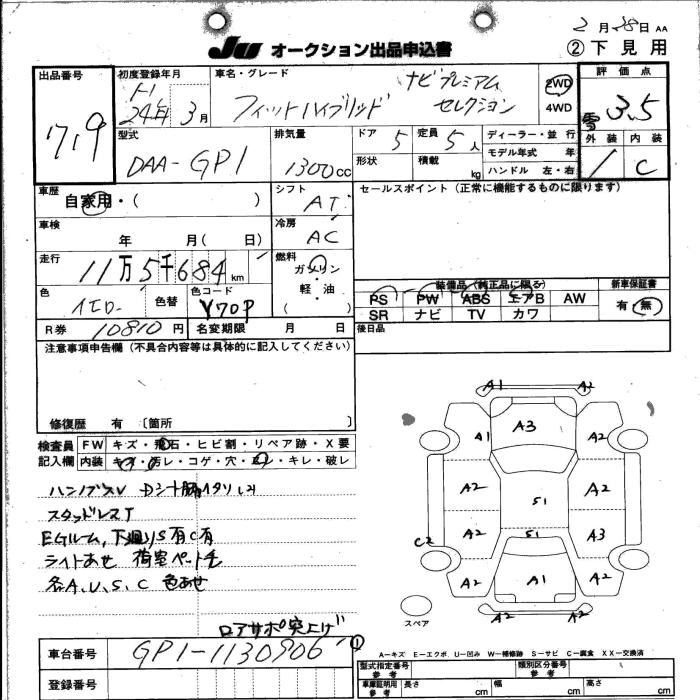 2月28日 AA
JU オークション出品申込書
②下見用
出品番号
719
初度登録年月
H
24年 3月
車名・グレード
フィットハイブリッド
ナビプレミアム
セレクション
2WD
4WD
評価点
3.5
外装 内装
C
型式
DAA-GP1
排気量
1300cc
ドア 5
定員 5人
形状
積載 kg
ディーラー・並行
モデル年式 年
ハンドル 左・右
車歴
自家用・( )
シフト
AT
セールスポイント(正常に機能するものに限ります)
車検
年 月( 日)
冷房
AC
走行
11万5千684km
燃料
ガソリン
・
軽・油
( )
色
イエロー
色替
色コード
Y70P
装備品(純正品に限る)
PS PW ABS エアB AW
SR ナビ TV カワ
新車保証書
有・無
R券 10810円
名変期限 月 日
後日品
注意事項申告欄(不具合内容等は具体的に記入してください)
修復歴 有〔箇所 〕
検査員
記入欄
FW キズ・飛石・ヒビ割・リペア跡・X要
内装 キズ・汚レ・コゲ・穴・スレ・キレ・破レ
スタッドレスT
EGルーム,下廻りS有C有
ライトあせ 荷室ペット毛
各A,U,S,C 色あせ
ロアサポ突上げ
A1 A2
A3
A1 A2
A2 S1 A2
A2 S1 A3
C2
A2 A1 A2
A2 A2
スペア
A-キズ E-エクボ U-凹み W-補修跡 S-サビ C-腐食 XX-交換済
車台番号
GP1-1130906
①
登録番号
型式指定番号
参考
類別区分番号
参考
車庫証明用
参考
長さ cm
幅 cm
高さ cm